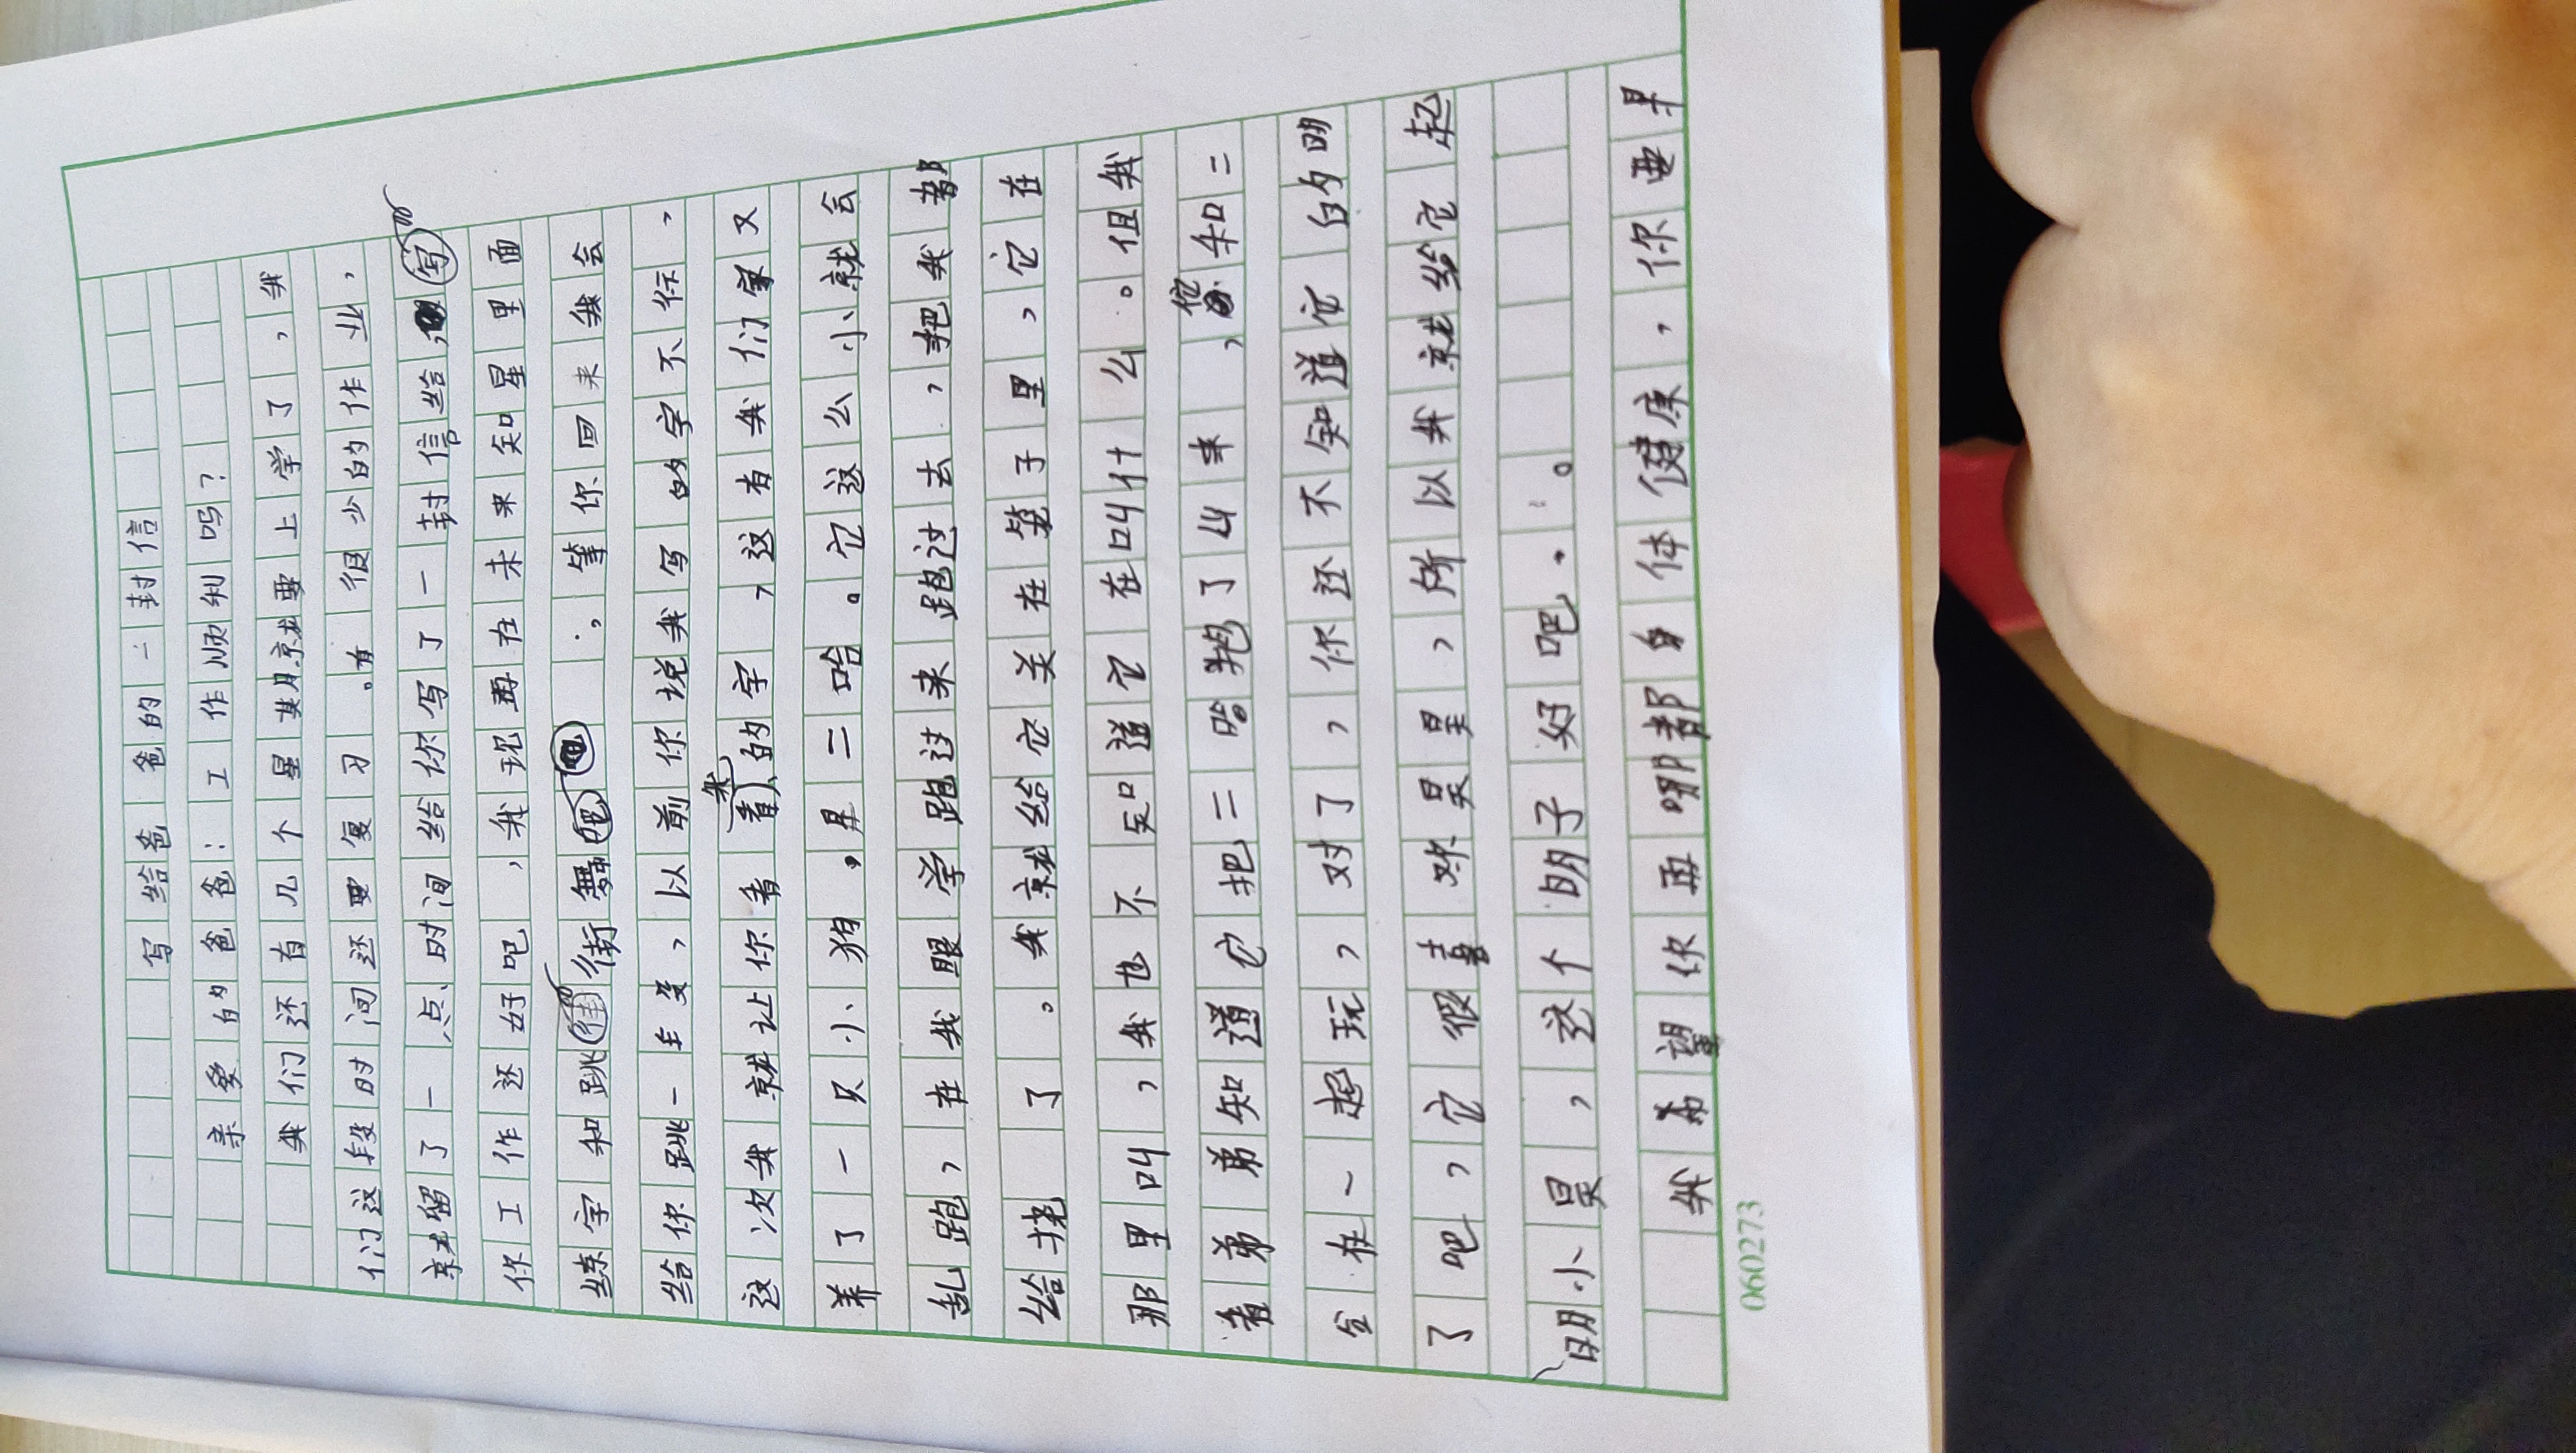 写给爸爸的一封信
亲爱的爸爸:工作顺利吗?
我们还有几个星期就要上学了,我
们这段时间还要复习。有很少的作业,
就留了一点时间给你写了一封信给写
你工作还好吧,我现再在未来知星里面
练字和跳街舞吧,等你回来我会
给你跳一段,以前你说我写的字不行,
这次我就让你看我的字,这有我们家又
养了一只小狗,是二哈。它这么小就会
乱跑,在我眼学跑过来跑过去,把我都
给挠了。我就给它关在笼子里,它在
那里叫,我也不知道它在叫什么。但我
看弟弟知道它把二哈抱了出来,他和二
在一起玩,对了,你还不知道它的明
了吧,它很喜欢昊昊,所以我就给它起
明小昊,这个明子好吧。
我希望你再哪都身体健康,你要早
060273